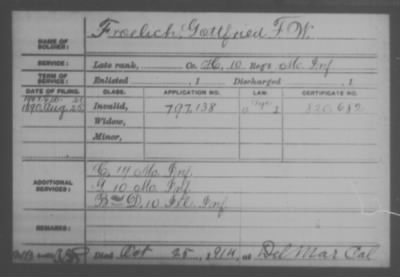 NAME OF SOLDIER: Froelich, Gottfried F. W.
SERVICE: Late rank, Co. H, 10 Reg't Mo. Inf
TERM OF SERVICE: Enlisted , 1 Discharged , 1
DATE OF FILING. CLASS. APPLICATION NO. LAW. CERTIFICATE NO.
1890, Aug. 25 Invalid, 797.138 820.682
Widow,
Minor,
ADDITIONAL SERVICES: C. 17 Mo. Inf.
10 Mo. Inf
D. 10 Ill. Inf
REMARKS:
Died Oct 25, 1914, at Del Mar Cal